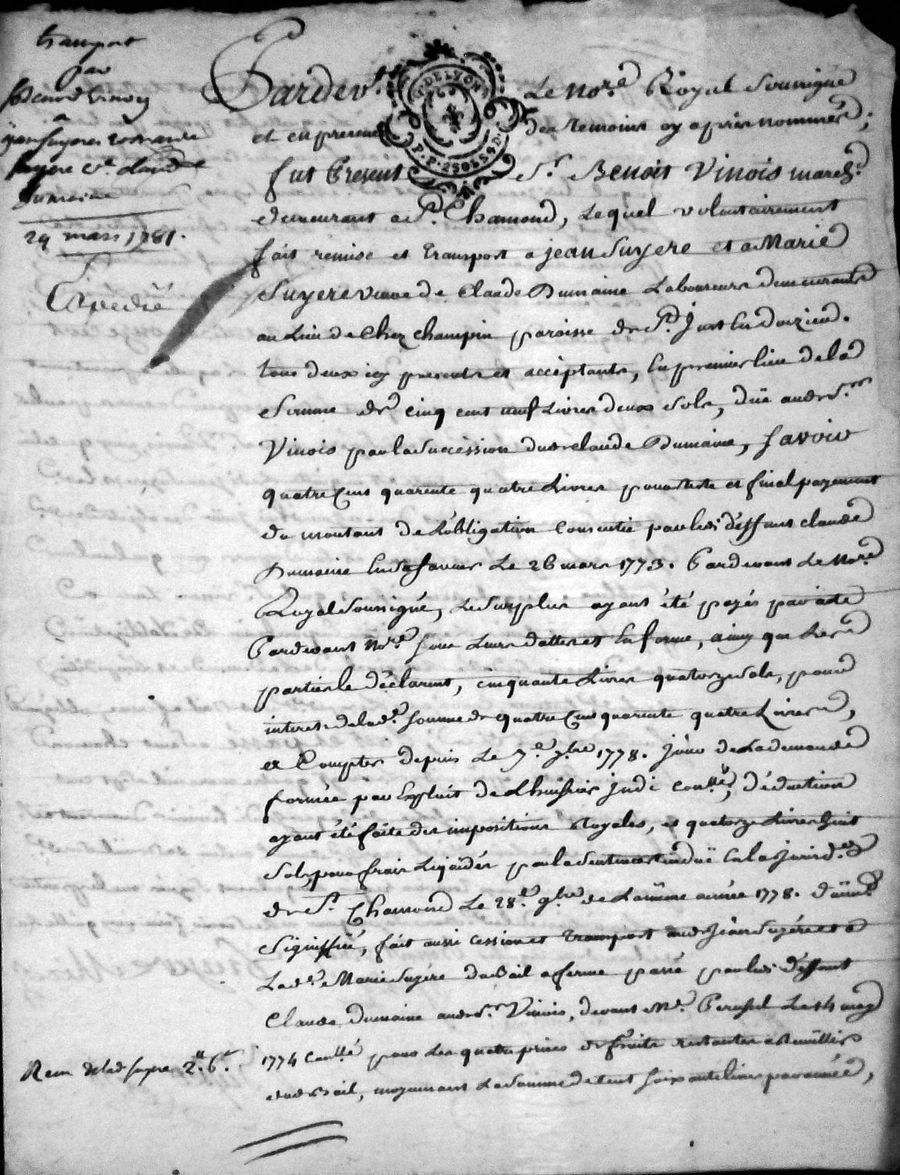 transport
par
Benoit Vinois
a
jean Suyere et marie
Suyere v.e Claude
Dumaine
29 mars 1781.
Expedié
G. DE LYON
P.P. 2 SOLS 4 D.
Pardev.t Le No.re Royal Soussigné
et en presence des temoins cy après nommés;
fut Present S.r Benoit Vinois march.d
demeurant a S.t Chamond, Lequel volontairement
fait remise et transport a jean Suyere et a Marie
Suyere veuve de Claude Dumaine Laboureurs demeurants
au Lieu de Chez Champin paroisse de S.t Just En doizieu.
tous deux icy presents et acceptants, En premier lieu de la
Somme de cinq cent neuf Livres deux sols, düe aud. S.r
Vinois par la Succession dud. Claude Dumaine, Savoir
quatre Cens quarente quatre Livres pour reste et final payement
du montant de L'obligation Consentie par led. deffunt Claude
Dumaine En sa faveur Le 26 mars 1773. Pardevant Le No.re
Royal Soussigné, Le Surplus ayant été payés par acte
Pardevant No.re sous Leurs dattes et En forme, ainsy que Les
parties le déclarent, cinquante Livres quatorze Sols, pour
interets de lad.e Somme de quatre Cens quarente quatre Livres,
et Compter depuis Le 7.e 7bre 1778. jour de La demande
formée par Exploit de L'huissier Judi con.llé, déduction
ayant été faite des impositions Royales, et quatorze Livres huit
Sols, pour frais Liquidés par la Sentence rendüe En la Jurid.on
de S.t Chamond Le 28.e 9bre de La même année 1778. düem.t
Signiffié, fait aussi cession et transport aud. Jean Suyère et a
Lad.e Marie Suyère du Bail a ferme passé par led. deffunt
Claude Dumaine aud. S.r Vinois, devant M.e Perussel Le 14 may
1774 con.llé pour Les quatre prises de fruits restantes a Ceuillir
dud. Bail, moyennant La Somme de Cent soixante livres par année,